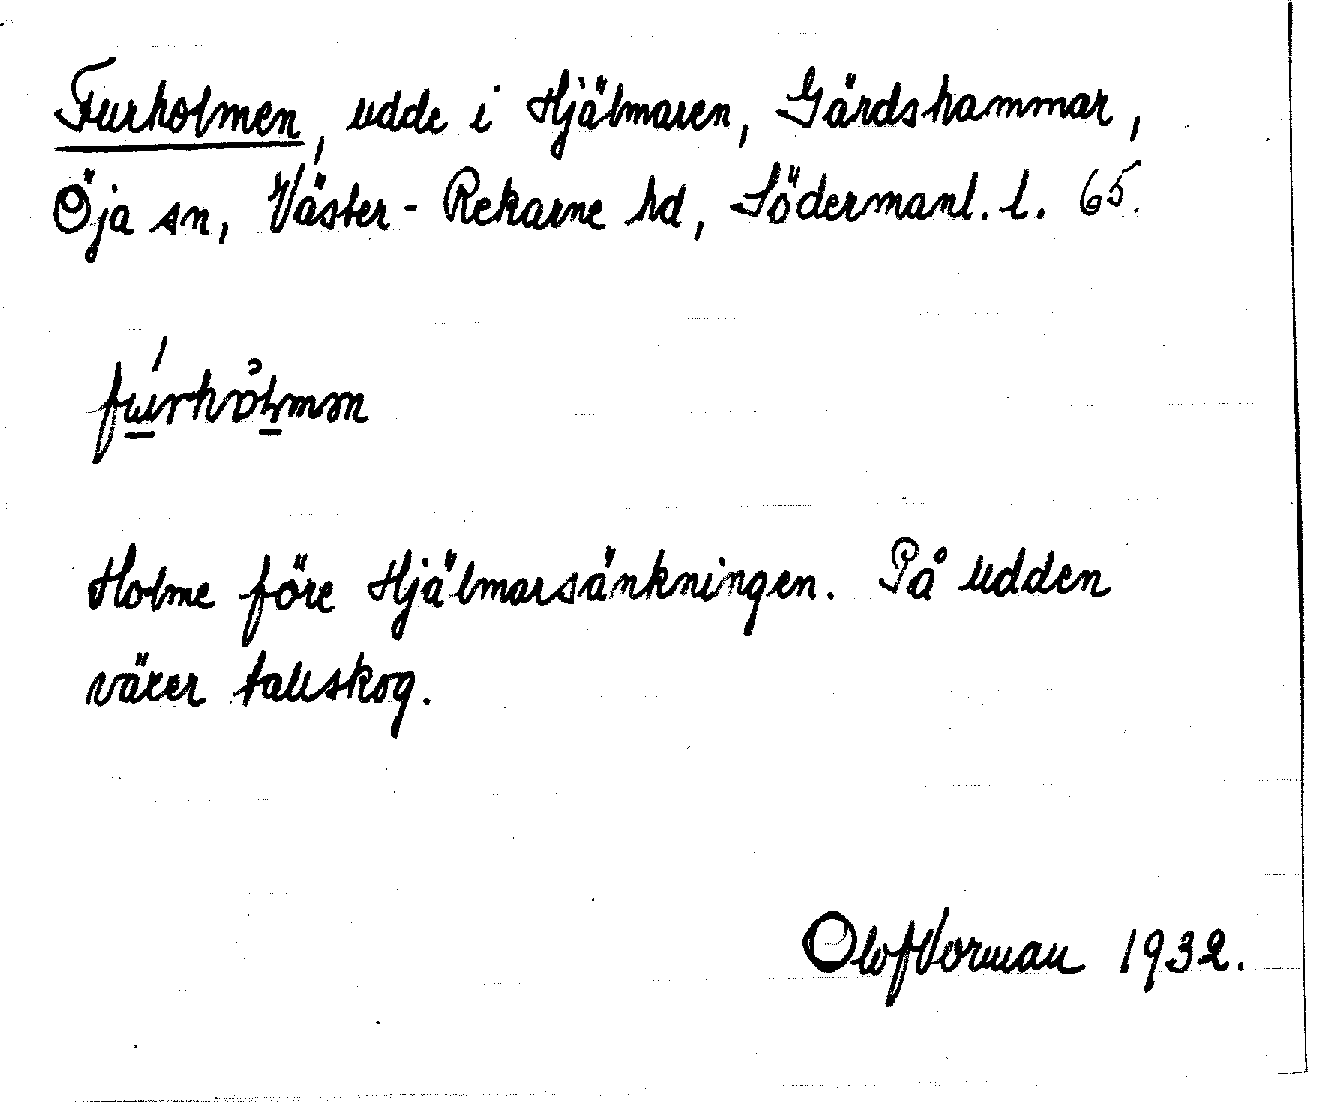 Furholmen, udde i Hjälmaren, Gärdshammar,
Öja sn, Väster-Rekarne hd, Södermanl. l. 65.
Holme före Hjälmarsänkningen. På udden
växer tallskog.
Olof Norman 1932.